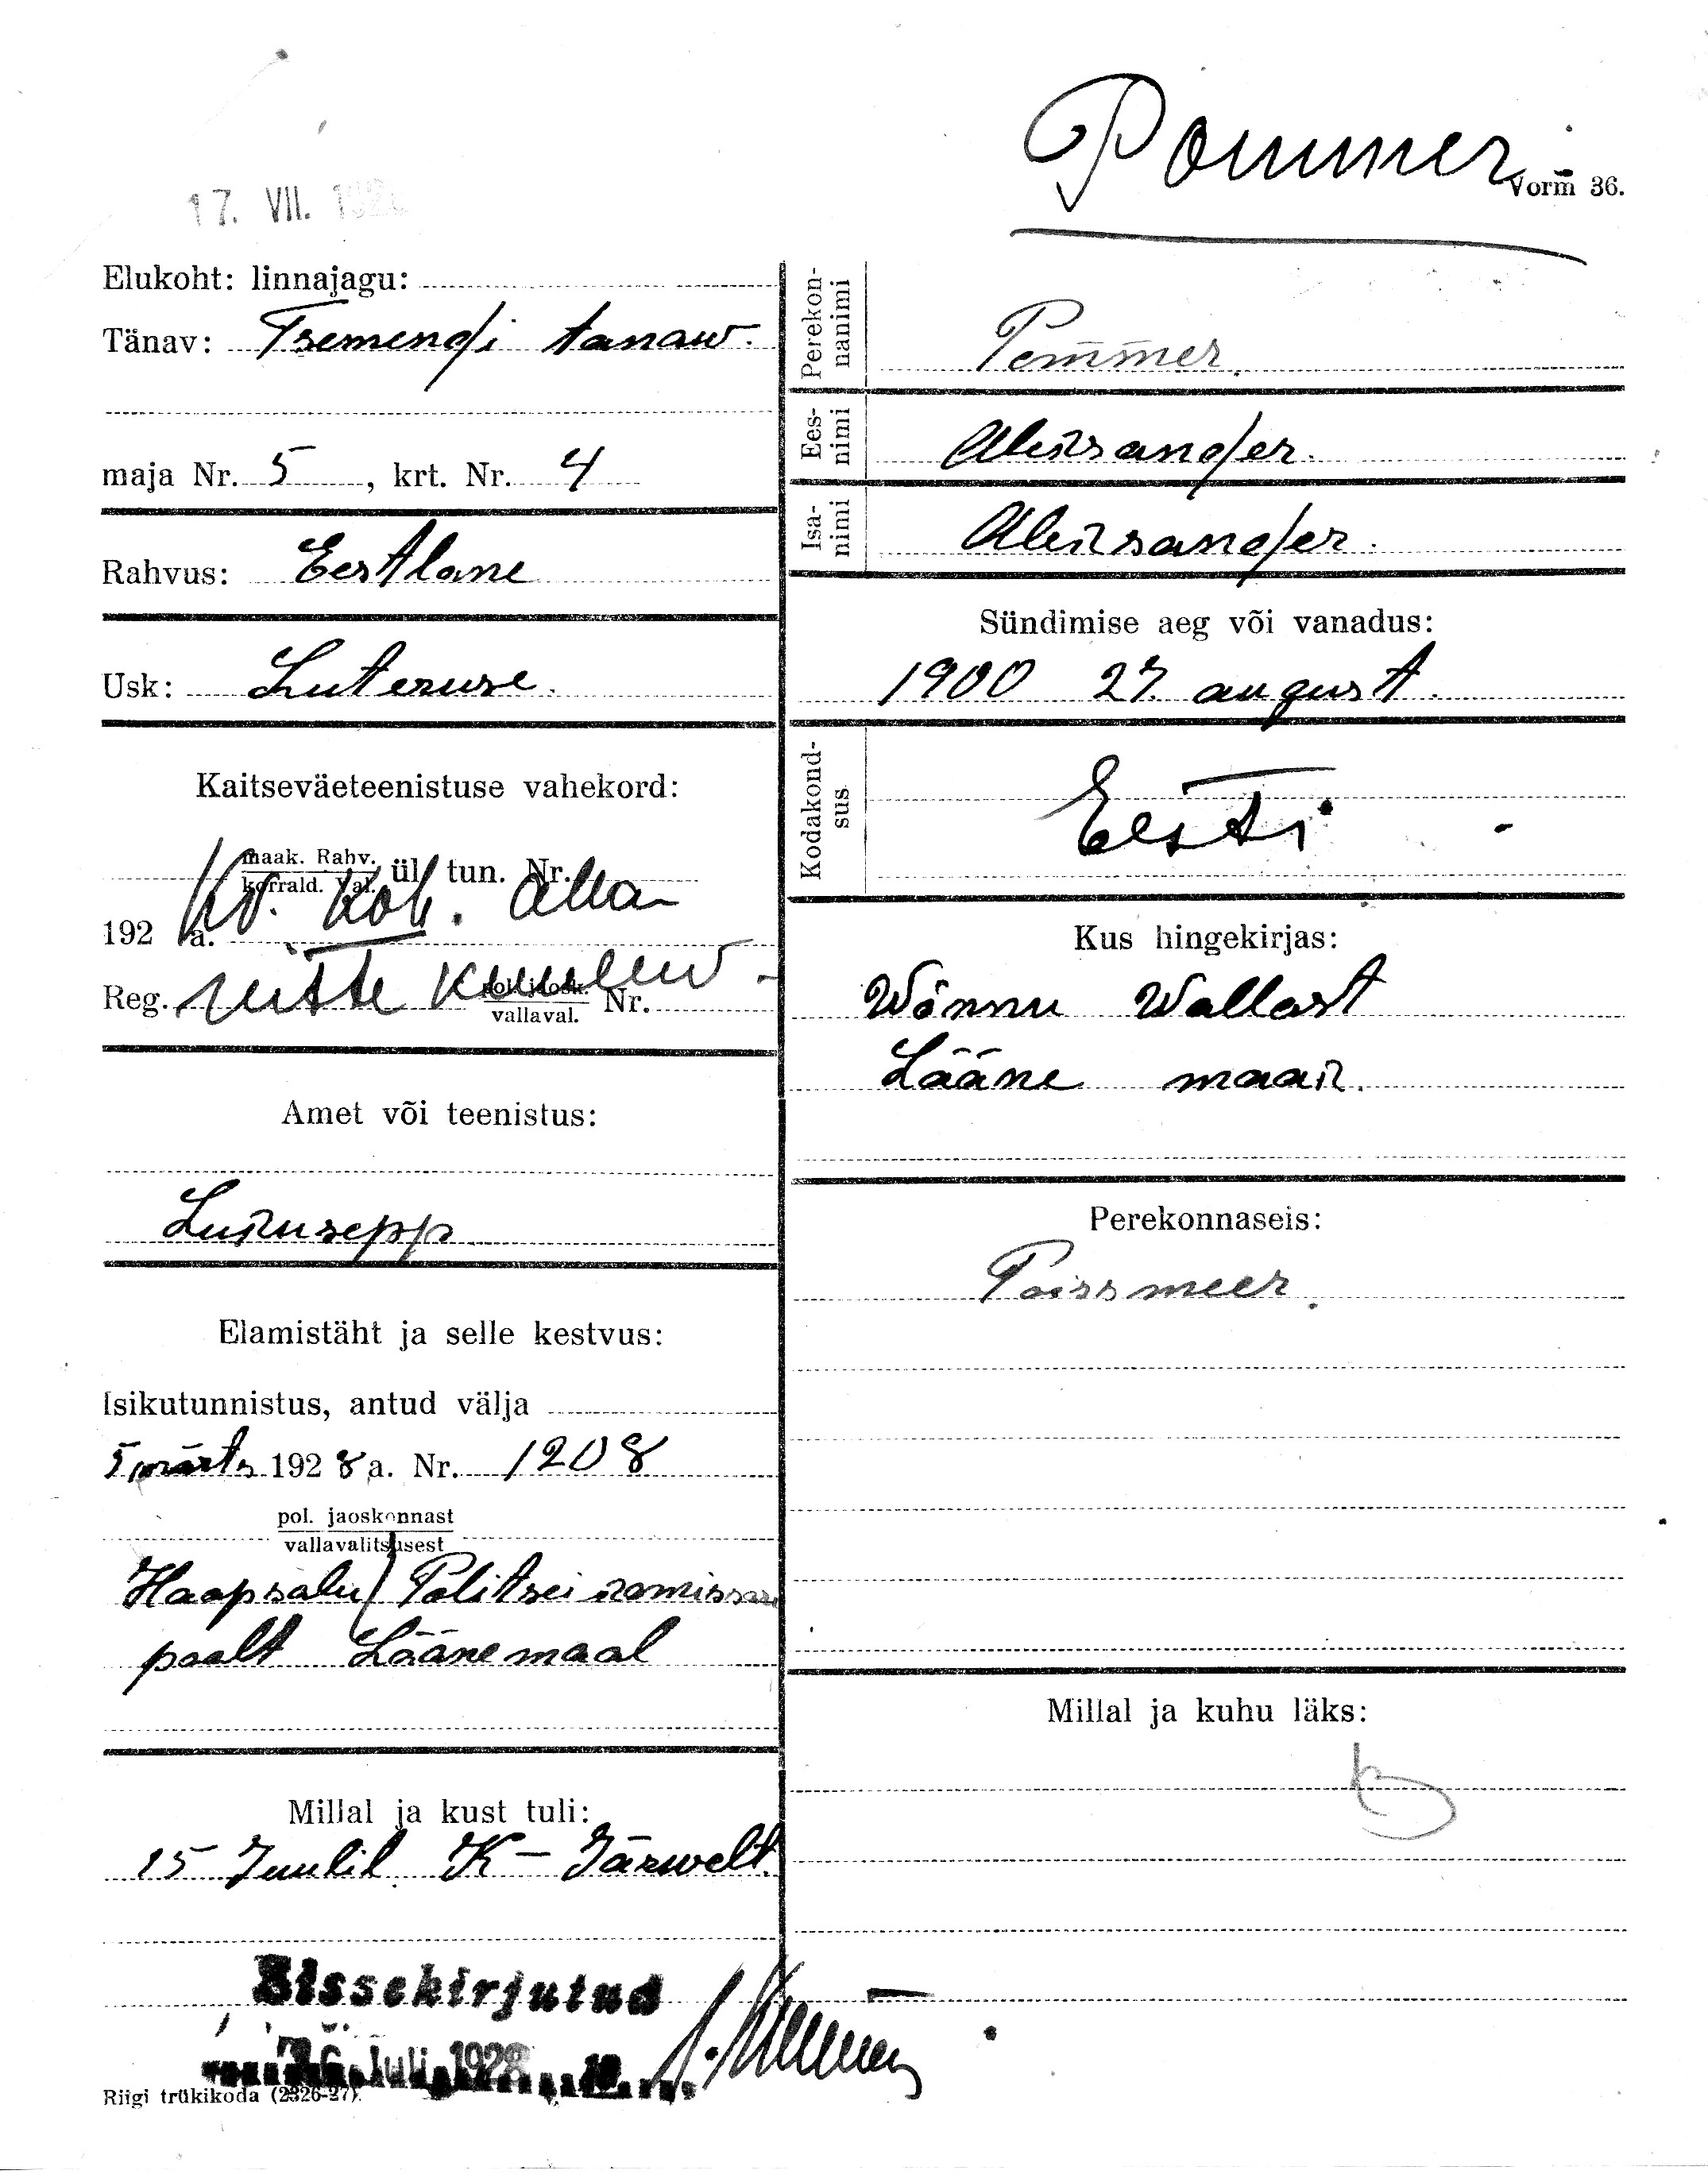 Pommer
Vorm 36.
17. VII. 1928
Elukoht: linnajagu:
Tänav: Tsemendi tanaw.
maja Nr. 5, krt. Nr. 4
Rahvus: Eestlane
Usk: Luteruse.
Kaitseväeteenistuse vahekord:
maak. Rahv.
korrald. Val. ül. tun. Nr.
Kv. koh. alla
192 a.
mitte kuuluv
Reg. pol. jaosk.
vallaval. Nr.
Amet või teenistus:
Lukusepp
Elamistäht ja selle kestvus:
Isikutunnistus, antud välja
5 märts 1928 a. Nr. 1208
pol. jaoskonnast
vallavalitsusest
Haapsalu Politsei komissari
poolt Läänemaal
Millal ja kust tuli:
15 Juulil K-Järwelt.
Sissekirjutud
16. Juli 1928
Riigi trükikoda (2326-27).
Perekonnanimi
Pommer.
Eesnimi
Aleksander.
Isanimi
Aleksander.
Sündimise aeg või vanadus:
1900 27. august.
Kodakondsus
Eesti
Kus hingekirjas:
Wõnnu Wallast
Lääne maak.
Perekonnaseis:
Poissmeer.
Millal ja kuhu läks: